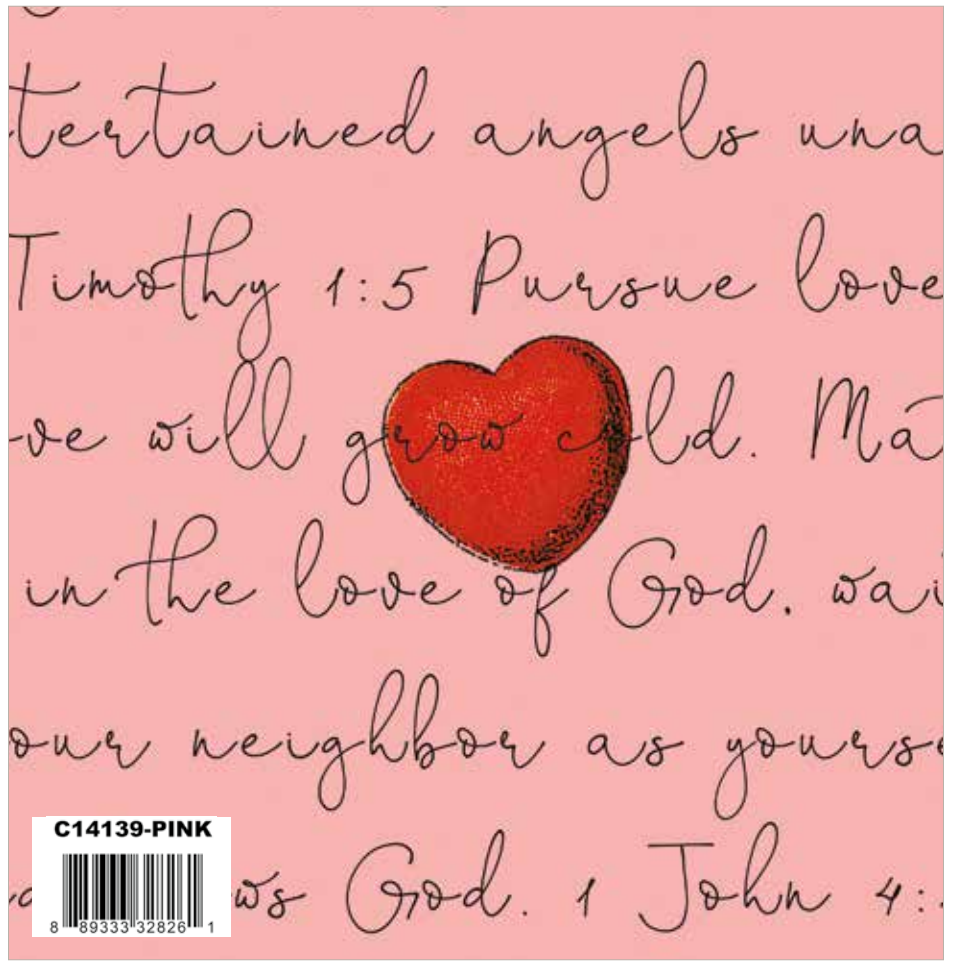 tertained angels una
Timothy 1:5 Pursue love
ve will grow cold. Mat
in the love of God. wai
our neighbor as yourse
ws God. 1 John 4:
C14139-PINK
8 89333 32826 1